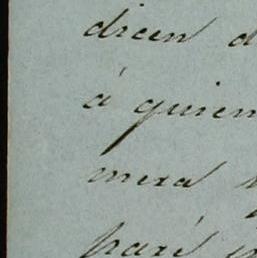 dicen d
á quien
mera
paré p